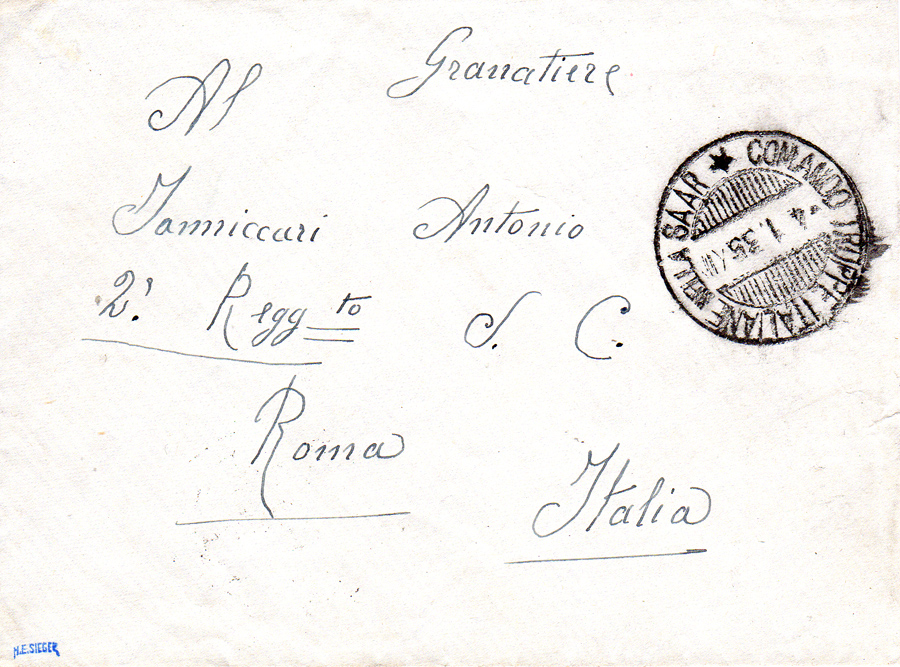 Al Granatiere
Ianniccari Antonio
2º. Regg to S. C.
Roma
Italia
COMANDO TRUPPE ITALIANE NELLA SAAR
4.1.35.XIII
H.E.SIEGER